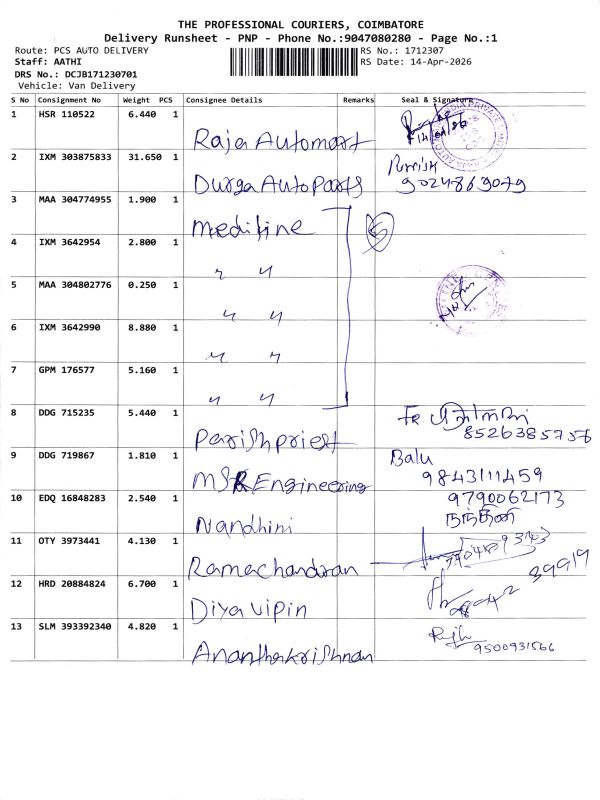 THE PROFESSIONAL COURIERS, COIMBATORE
Delivery Runsheet - PNP - Phone No.:9047080280 - Page No.:1
Route: PCS AUTO DELIVERY RS No.: 1712307
Staff: AATHI RS Date: 14-Apr-2026
DRS No.: DCJB171230701
Vehicle: Van Delivery
S No Consignment No Weight PCS Consignee Details Remarks Seal & Signature
1 HSR 110522 6.440 1 Raja Automart
2 IXM 303875833 31.650 1 Durga Auto Parts 9024869079
3 MAA 304774955 1.900 1 Medifine 5
4 IXM 3642954 2.800 1 〃 〃
5 MAA 304802776 0.250 1 〃 〃
6 IXM 3642990 8.880 1 〃 〃
7 GPM 176577 5.160 1 〃 〃
8 DDG 715235 5.440 1 Parish priest FR 8526385756
9 DDG 719867 1.810 1 MSR Engineering Balu 9843111459
10 EDQ 16848283 2.540 1 Nandhini 9790062173 நந்தினி
11 OTY 3973441 4.130 1 Ramachandran
12 HRD 20884824 6.700 1 Diya Vipin 39919
13 SLM 393392340 4.820 1 Ananthakrishnan 9500931566